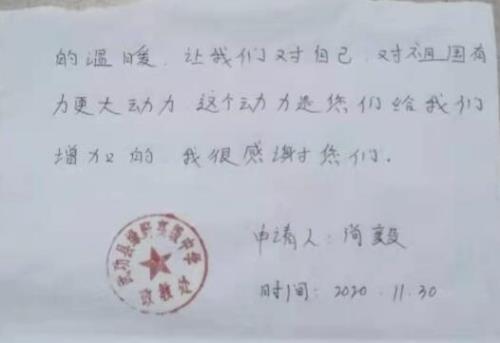 的温暖.让我们对自己.对祖国有
力更大动力 这个动力是您们给我们
增加的 我很感谢您们.
申请人:尚毅
时间:2020.11.30